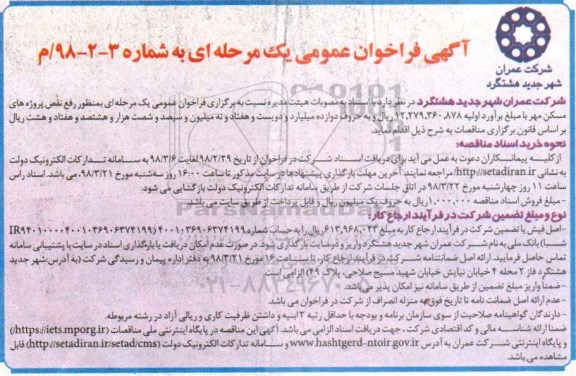 آگهی فراخوان عمومی یک مرحله ای به شماره ۳-۲-۹۸/م
شرکت عمران
شهر جدید هشتگرد
شرکت عمران شهر جدید هشتگرد در نظر دارد با استناد به مصوبات هیئت مدیره نسبت به برگزاری فراخوان عمومی یک مرحله ای بمنظور رفع نقص پروژه های
مسکن مهر با مبلغ برآورد اولیه ۱۲,۲۷۹,۳۶۰,۸۷۸ ریال و به حروف دوازده میلیارد و دویست و هفتاد و نه میلیون و سیصد و شصت هزار و هشتصد و هفتاد و هشت ریال
بر اساس قانون برگزاری مناقصات به شرح ذیل اقدام نماید.
نحوه خرید اسناد مناقصه:
از کلیه پیمانکاران دعوت به عمل می آید برای دریافت اسناد شرکت در فراخوان از تاریخ ۹۸/۲/۲۹ لغایت ۹۸/۳/۶ به سامانه تدارکات الکترونیک دولت
به نشانی http://setadiran.ir مراجعه نمایند. آخرین مهلت بارگذاری پیشنهادها در سایت مذکور تا ساعت ۱۶:۰۰ روز سه شنبه مورخ ۹۸/۳/۲۱ می باشد. راس
ساعت ۱۱ روز چهارشنبه مورخ ۹۸/۳/۲۲ در اتاق جلسات شرکت از طریق سامانه تدارکات الکترونیک دولت بازگشایی می شود.
مبلغ خرید اسناد: ۱,۰۰۰,۰۰۰ ریال به حروف یک میلیون ریال و قابل پرداخت از طریق سایت می باشد.
نوع و مبلغ تضمین شرکت در فرآیند ارجاع کار:
-اصل فیش یا تضمین شرکت در فرآیند ارجاع کار به مبلغ ۶۱۳,۹۶۸,۰۴۳ ریال را به حساب شماره
شبا) بانک ملی به نام شرکت عمران شهر جدید هشتگرد واریز و در سامانه بارگذاری شود. در صورت عدم امکان دریافت یا بارگذاری اسناد در سایت با پشتیبانی سامانه
تماس حاصل فرمایید. ارائه اصل ضمانتنامه شرکت در فرآیند ارجاع کار، تا ساعت ۱۶ مورخ ۹۸/۳/۲۱ به دفتر اداره پیمان و رسیدگی شرکت (به آدرس: شهر جدید
هشتگرد فاز ۲ محله ۴ خیابان نیایش خیابان شهید مسیح صلاحی، پلاک ۴۹) الزامی است.
-ضمنا واریز مبلغ تضمین از طریق سامانه نیز امکان پذیر می باشد.
-عدم ارائه اصل ضمانت نامه تا تاریخ فوق به منزله انصراف از شرکت در فراخوان می باشد.
-دارندگان گواهینامه صلاحیت از سوی سازمان برنامه و بودجه با حداقل رتبه ۳ ابنیه و داشتن ظرفیت کاری و ریالی آزاد در رشته مربوطه.
ضمنا ارائه شناسه مالی و کد اقتصادی شرکت، جهت دریافت اسناد الزامی می باشد. آگهی این مناقصه در پایگاه اینترنتی ملی مناقصات (https://iets.mporg.ir/)
و پایگاه اینترنتی شرکت عمران به آدرس www.hashtgerd-ntoir.gov.ir و سامانه تدارکات الکترونیک دولت (http://setadiran.ir/setad/cms) قابل
مشاهده می باشد.
ParsNamadData
۰۲۱-۸۸۳۴۹۶۷۰